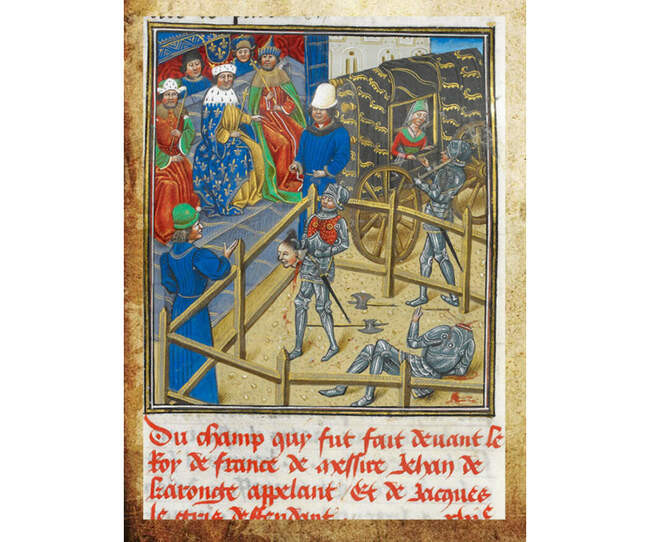 Du champ quy fut fait devant le
Roy de france de messire Jehan de
karonge appelant Et de Jacques
le gris deffendant xlix